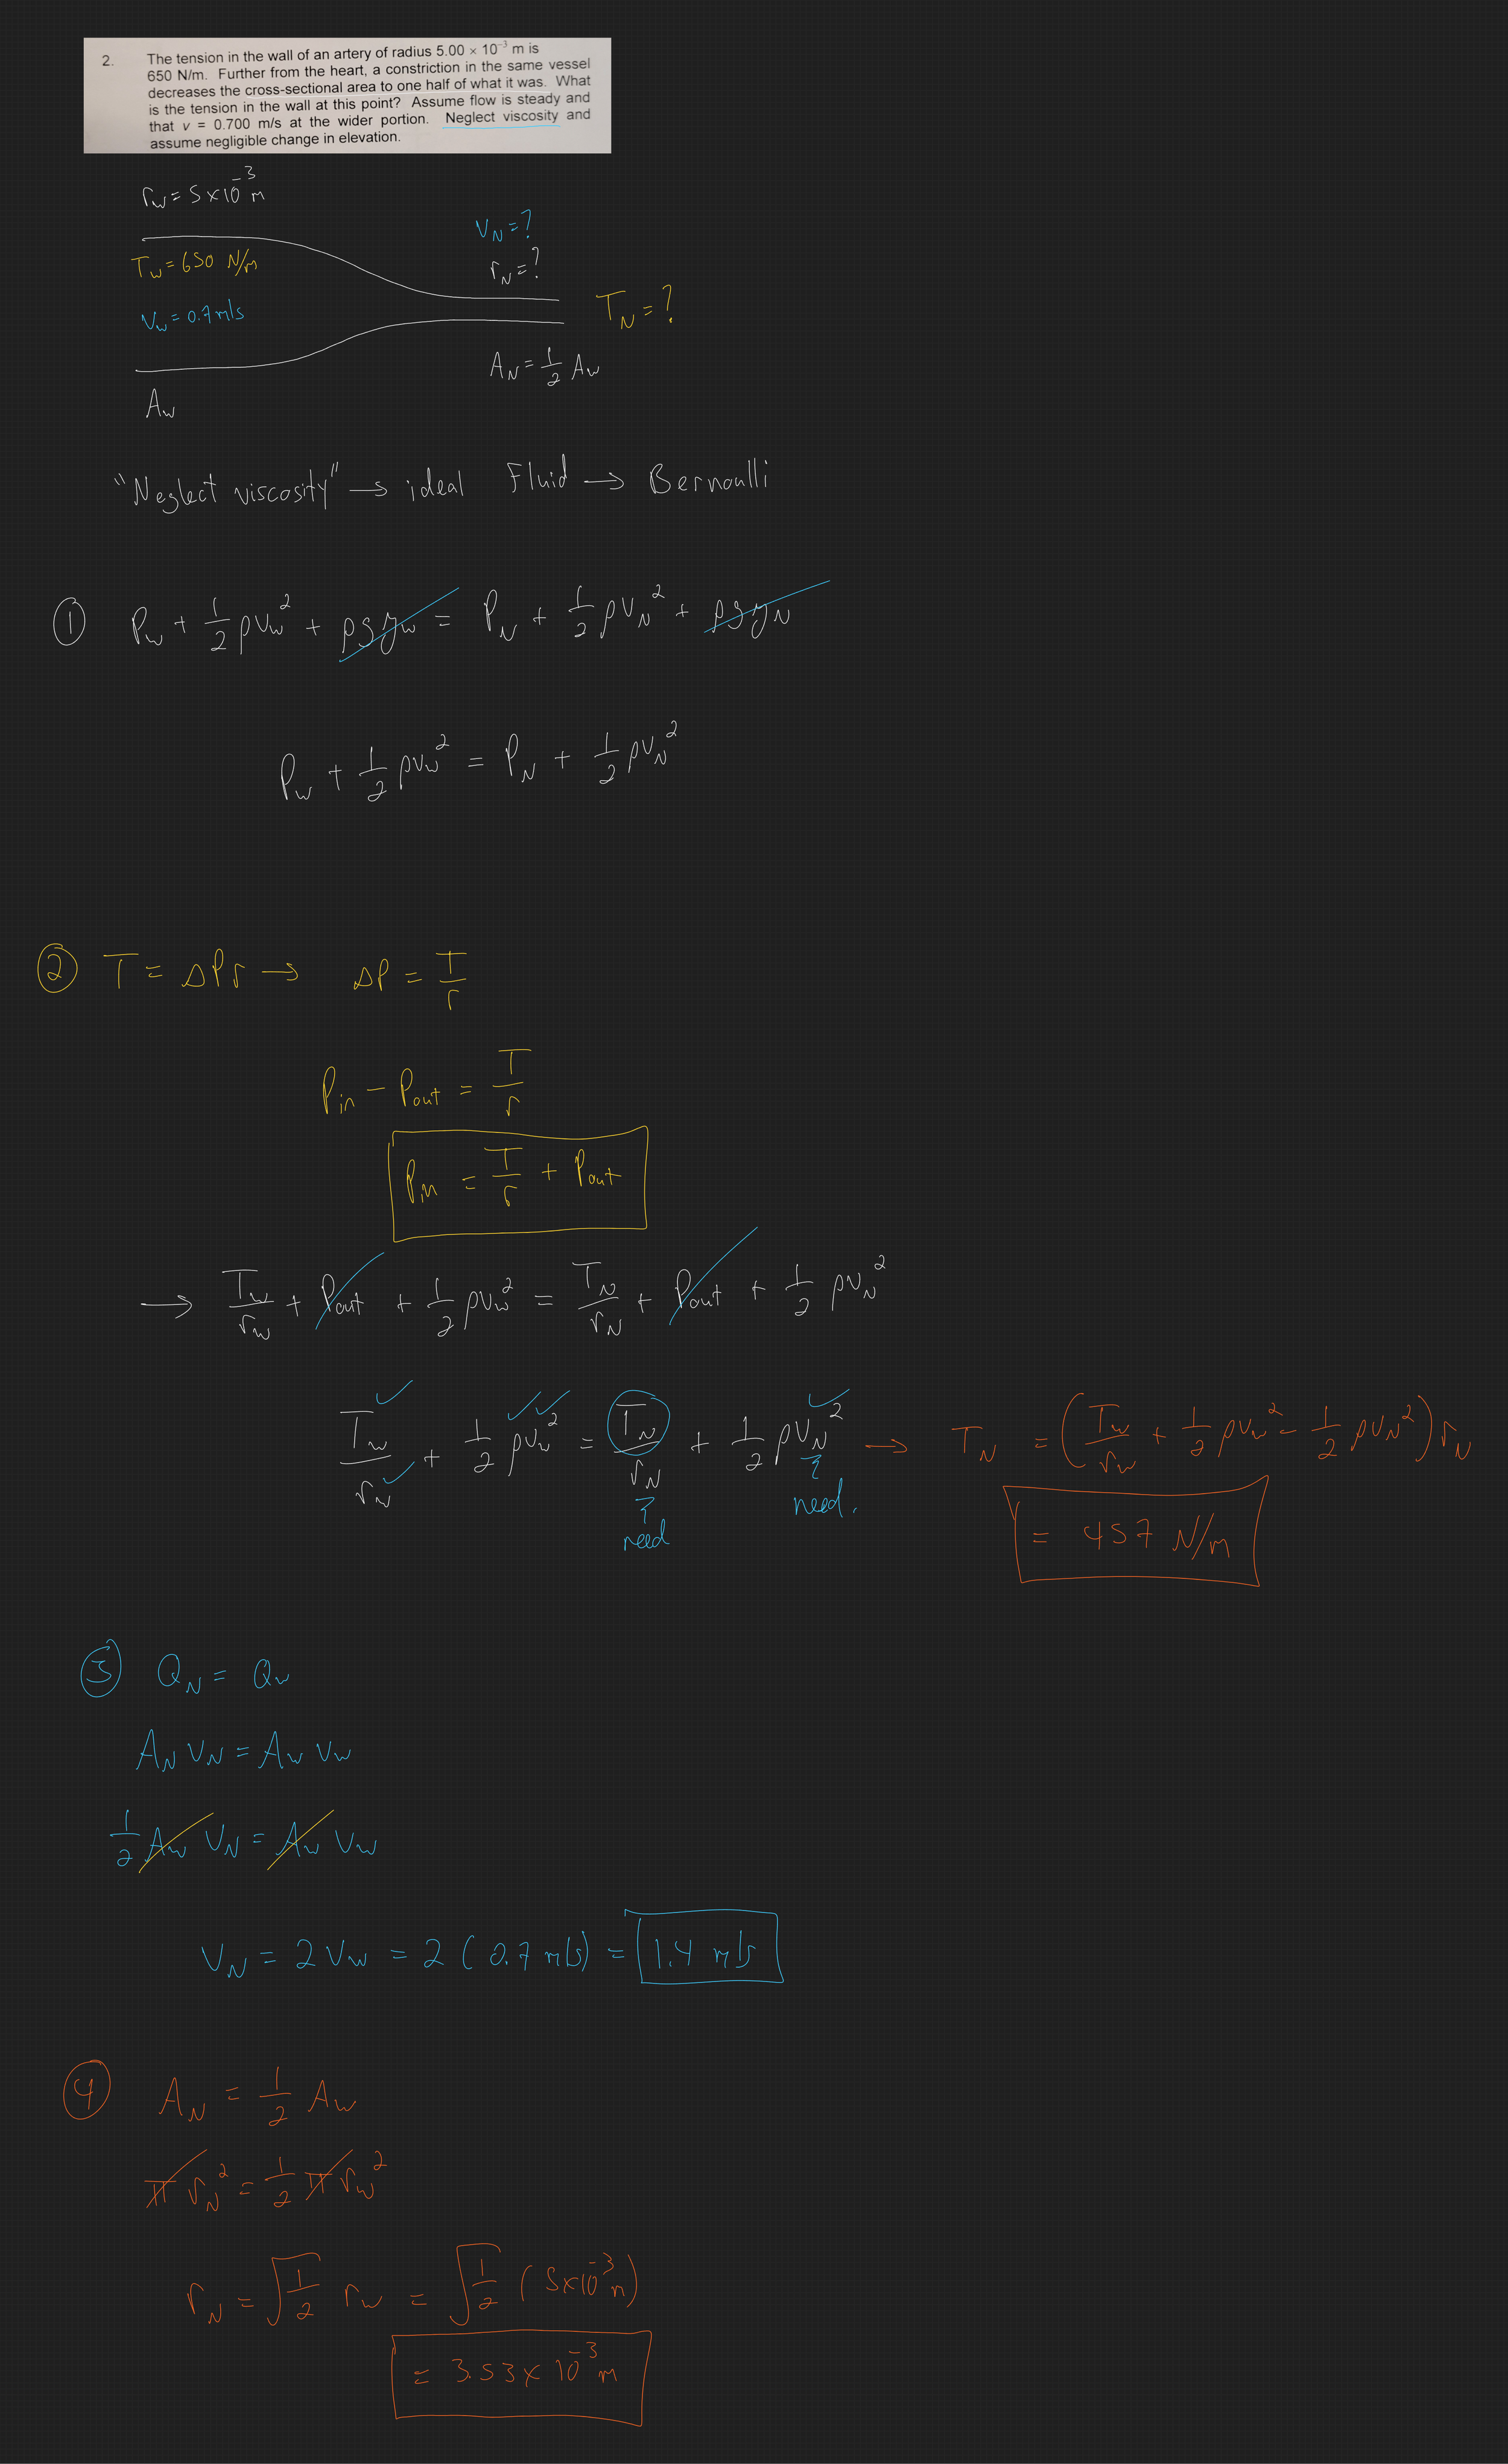 2. The tension in the wall of an artery of radius 5.00 × 10⁻³ m is
650 N/m. Further from the heart, a constriction in the same vessel
decreases the cross-sectional area to one half of what it was. What
is the tension in the wall at this point? Assume flow is steady and
that v = 0.700 m/s at the wider portion. Neglect viscosity and
assume negligible change in elevation.
r_w = 5×10⁻³ m
v_N = ?
T_w = 650 N/m
r_N = ?
v_w = 0.7 m/s
T_N = ?
A_N = 1/2 A_w
A_w
"Neglect viscosity" → ideal Fluid → Bernoulli
① P_w + 1/2 ρv_w² + ρgy_w = P_N + 1/2 ρv_N² + ρgy_N
P_w + 1/2 ρv_w² = P_N + 1/2 ρv_N²
② T = ΔPr → ΔP = T/r
P_in − P_out = T/r
P_in = T/r + P_out
→ T_w/r_w + P_out + 1/2 ρv_w² = T_N/r_N + P_out + 1/2 ρv_N²
T_w/r_w + 1/2 ρv_w² = T_N/r_N + 1/2 ρv_N² → T_N = (T_w/r_w + 1/2 ρv_w² − 1/2 ρv_N²) r_N
need need.
= 457 N/m
③ Q_N = Q_w
A_N v_N = A_w v_w
1/2 A_w v_N = A_w v_w
v_N = 2 v_w = 2 (0.7 m/s) = 1.4 m/s
④ A_N = 1/2 A_w
π r_N² = 1/2 π r_w²
r_N = √(1/2) r_w = √(1/2) (5×10⁻³ m)
= 3.53 × 10⁻³ m